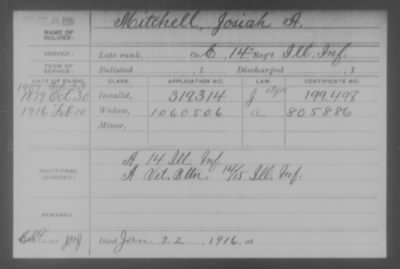 NAME OF SOLDIER: Mitchell, Josiah A.
SERVICE: Late rank, Co. E, 14 Reg't Ill. Inf.
TERM OF SERVICE: Enlisted , 1 Discharged , 1
DATE OF FILING. CLASS. APPLICATION NO. LAW. CERTIFICATE NO.
1879 Oct 30 Invalid, 319314 J 199,498
1916 Feb 10 Widow, 1060506 a 805886
Minor,
ADDITIONAL SERVICES: A 14 Ill. Inf.
A Vet. Batt. 14/15 Ill. Inf.
REMARKS:
Died Jan 22, 1916, at